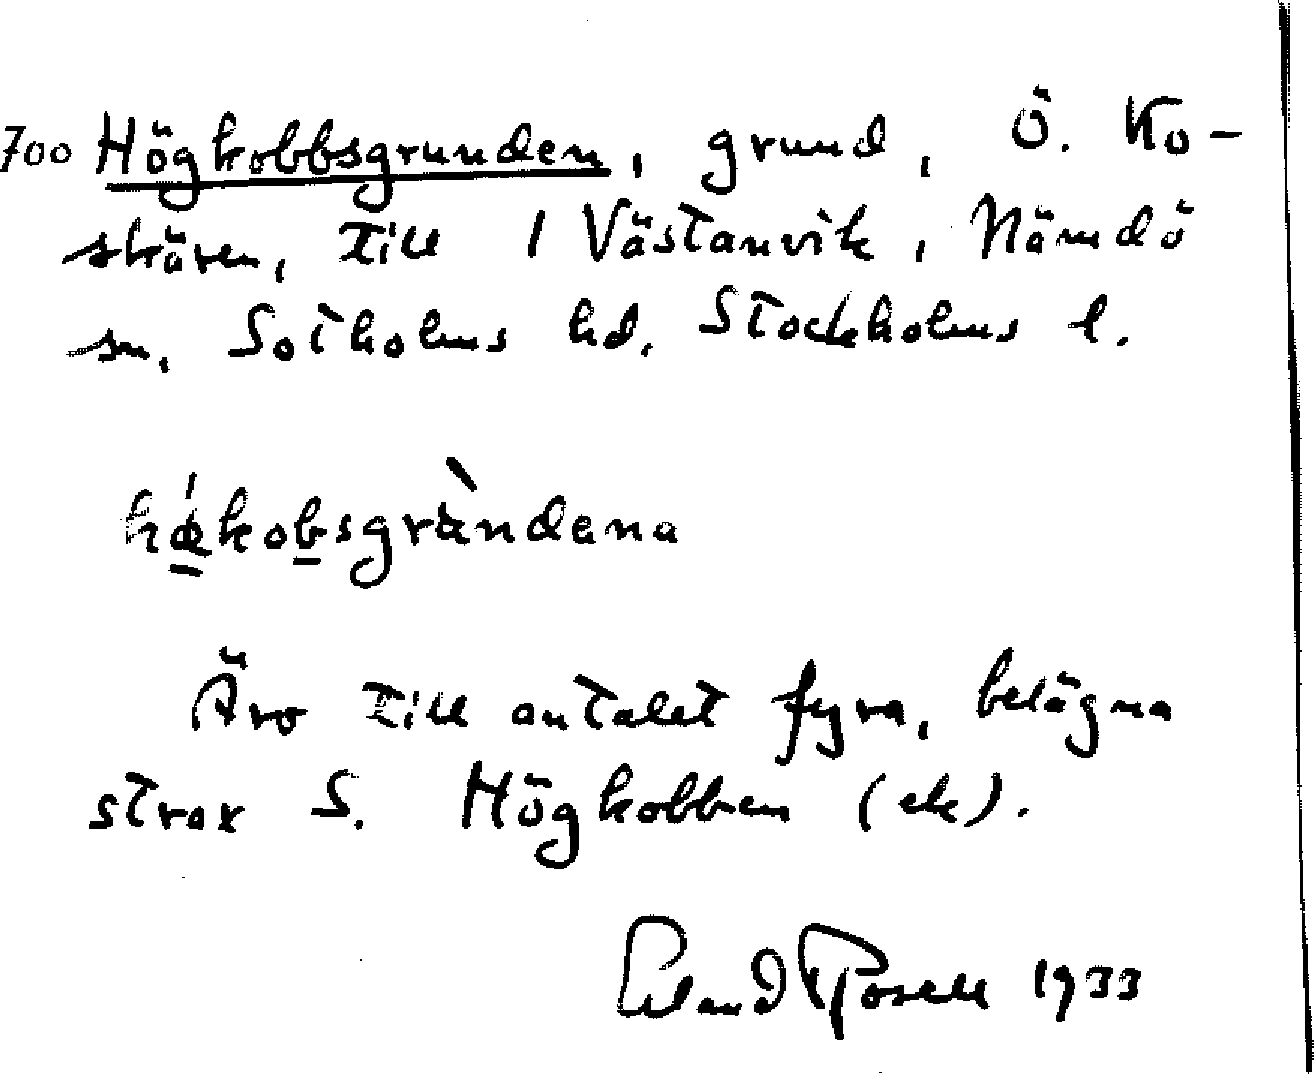 700 Högkobbsgrunden, grund, Ö. Ko-
skären, till 1 Västanvik, Nämdö
sn, Sotholms hd, Stockholms l.
hǿkobsgrùndena
Äro till antalet fyra, belägna
strax S. Högkobben (ek).
Erland Rosell 1933